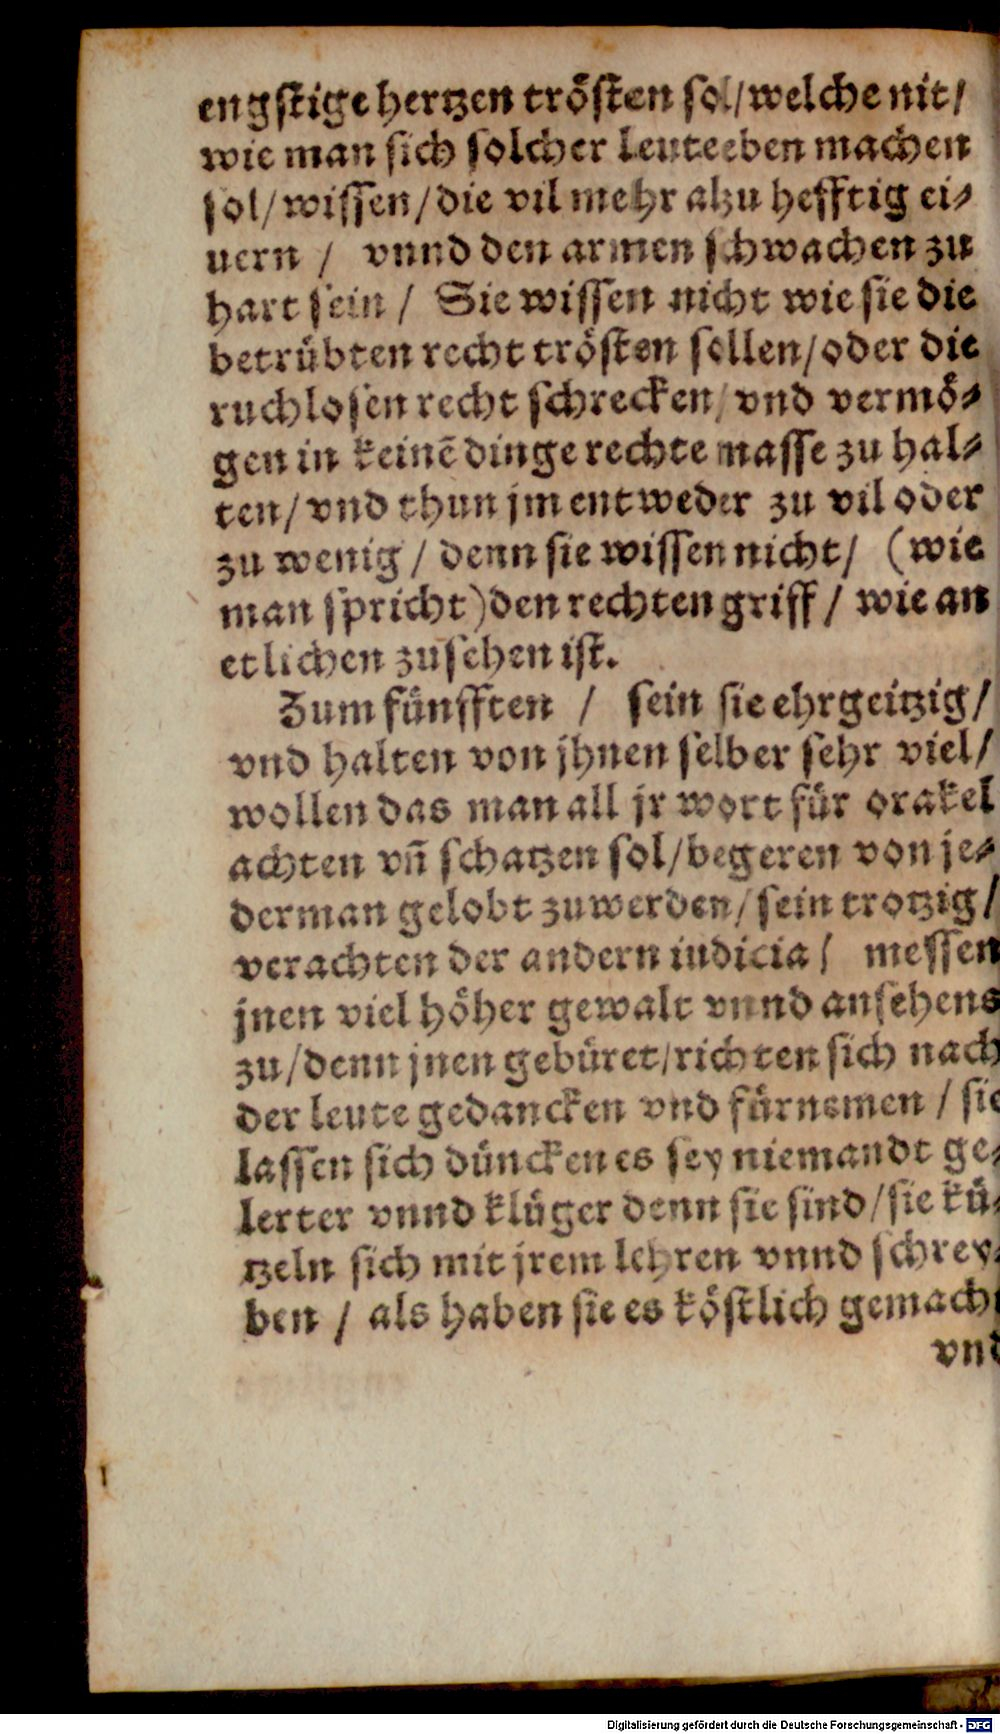 engstige hertzen trösten sol/welche nit/
wie man sich solcher leute eben machen
sol/wissen/die vil mehr alzu hefftig ei⸗
uern / vnnd den armen schwachen zu
hart sein / Sie wissen nicht wie sie die
betrübten recht trösten sollen/oder die
ruchlosen recht schrecken/vnd vermö⸗
gen in keinē dinge rechte masse zu hal⸗
ten/vnd thun jm entweder zu vil oder
zu wenig / denn sie wissen nicht/ (wie
man spricht)den rechten griff / wie an
etlichen zusehen ist.
Zum fünfften / sein sie ehrgeitzig/
vnd halten von jhnen selber sehr viel/
wollen das man all jr wort für orakel
achten vñ schatzen sol/begeren von je⸗
derman gelobt zuwerden/sein trotzig/
verachten der andern iudicia / messen
jnen viel höher gewalt vnnd ansehens
zu/denn jnen gebüret/richten sich nach
der leute gedancken vnd fürnemen / sie
lassen sich düncken es sey niemandt ge⸗
lerter vnnd klüger denn sie sind/sie kü⸗
tzeln sich mit jrem lehren vnnd schrey⸗
ben / als haben sie es köstlich gemacht
vnd
Digitalisierung gefördert durch die Deutsche Forschungsgemeinschaft - DFG